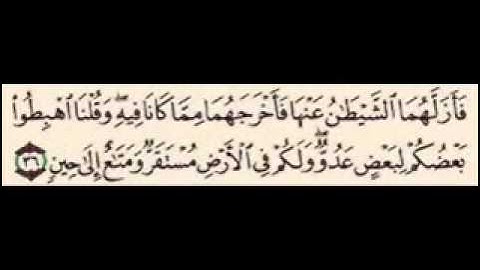 فَأَزَلَّهُمَا ٱلشَّيْطَٰنُ عَنْهَا فَأَخْرَجَهُمَا مِمَّا كَانَا فِيهِ ۖ وَقُلْنَا ٱهْبِطُوا۟
بَعْضُكُمْ لِبَعْضٍ عَدُوٌّ ۖ وَلَكُمْ فِى ٱلْأَرْضِ مُسْتَقَرٌّ وَمَتَٰعٌ إِلَىٰ حِينٍ ٣٦